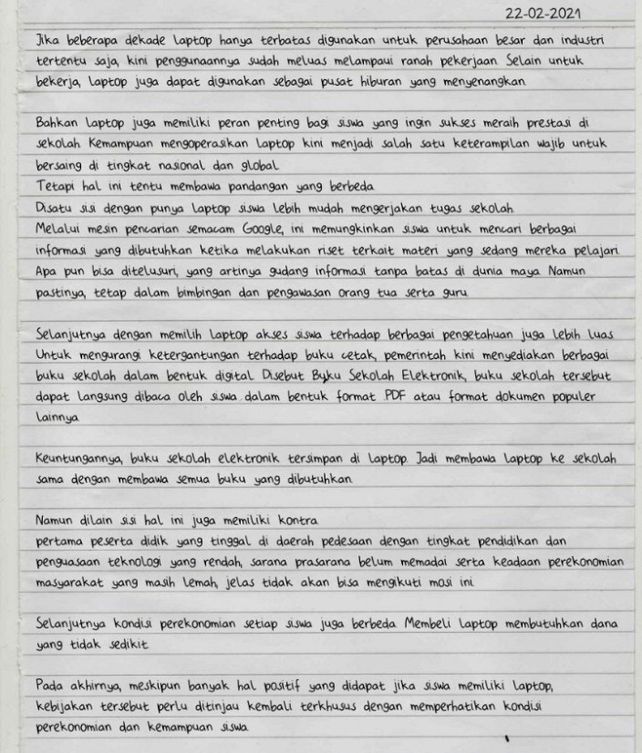 22-02-2021
Jika beberapa dekade laptop hanya terbatas digunakan untuk perusahaan besar dan industri
tertentu saja, kini penggunaannya sudah meluas melampaui ranah pekerjaan Selain untuk
bekerja, laptop juga dapat digunakan sebagai pusat hiburan yang menyenangkan
Bahkan laptop juga memiliki peran penting bagi siswa yang ingin sukses meraih prestasi di
sekolah Kemampuan mengoperasikan laptop kini menjadi salah satu keterampilan wajib untuk
bersaing di tingkat nasional dan global
Tetapi hal ini tentu membawa pandangan yang berbeda
Disatu sisi dengan punya laptop siswa lebih mudah mengerjakan tugas sekolah
Melalui mesin pencarian semacam Google, ini memungkinkan siswa untuk mencari berbagai
informasi yang dibutuhkan ketika melakukan riset terkait materi yang sedang mereka pelajari
Apa pun bisa ditelusuri, yang artinya gudang informasi tanpa batas di dunia maya Namun
pastinya, tetap dalam bimbingan dan pengawasan orang tua serta guru
Selanjutnya dengan memilih laptop akses siswa terhadap berbagai pengetahuan juga lebih luas
Untuk mengurangi ketergantungan terhadap buku cetak, pemerintah kini menyediakan berbagai
buku sekolah dalam bentuk digital Disebut Buku Sekolah Elektronik, buku sekolah tersebut
dapat langsung dibaca oleh siswa dalam bentuk format PDF atau format dokumen populer
lainnya
Keuntungannya, buku sekolah elektronik tersimpan di laptop Jadi membawa laptop ke sekolah
sama dengan membawa semua buku yang dibutuhkan
Namun dilain sisi hal ini juga memiliki kontra
pertama peserta didik yang tinggal di daerah pedesaan dengan tingkat pendidikan dan
penguasaan teknologi yang rendah, sarana prasarana belum memadai serta keadaan perekonomian
masyarakat yang masih lemah, jelas tidak akan bisa mengikuti mosi ini
Selanjutnya kondisi perekonomian setiap siswa juga berbeda Membeli laptop membutuhkan dana
yang tidak sedikit
Pada akhirnya, meskipun banyak hal positif yang didapat jika siswa memiliki laptop,
kebijakan tersebut perlu ditinjau kembali terkhusus dengan memperhatikan kondisi
perekonomian dan kemampuan siswa